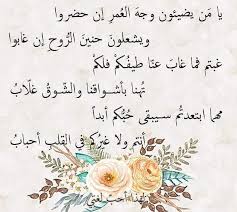 يا مَن يضيئون وجهَ العُمرِ إن حضروا
ويشعلونَ حنينَ الرُّوحِ إن غابوا
غبتم فما غابَ عنّا طيفُكُم فلكُم
تُهنا بأشواقنا والشَّوقُ غلّابُ
مهما ابتعدتُم سيبقى حُبُّكُم أبداً
أنتم ولا غيرُكُم في القلبِ أحبابُ
لهذا أحببت لغتي